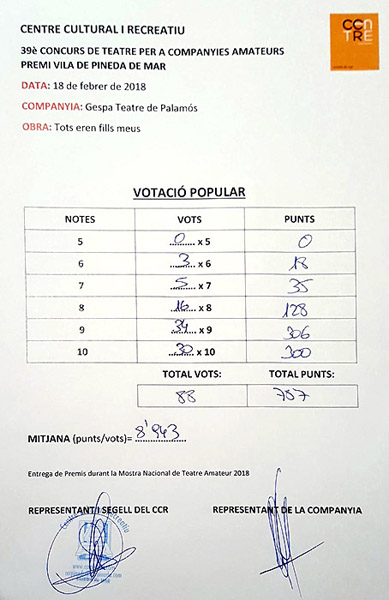 CENTRE CULTURAL I RECREATIU
CCR
CENTRE
39è CONCURS DE TEATRE PER A COMPANYIES AMATEURS
PREMI VILA DE PINEDA DE MAR
DATA: 18 de febrer de 2018
COMPANYIA: Gespa Teatre de Palamós
OBRA: Tots eren fills meus
VOTACIÓ POPULAR
NOTES VOTS PUNTS
5 0 x 5 0
6 3 x 6 18
7 5 x 7 35
8 16 x 8 128
9 34 x 9 306
10 30 x 10 300
TOTAL VOTS: TOTAL PUNTS:
88 787
MITJANA (punts/vots)= 8'943
Entrega de Premis durant la Mostra Nacional de Teatre Amateur 2018
REPRESENTANT I SEGELL DEL CCR REPRESENTANT DE LA COMPANYIA